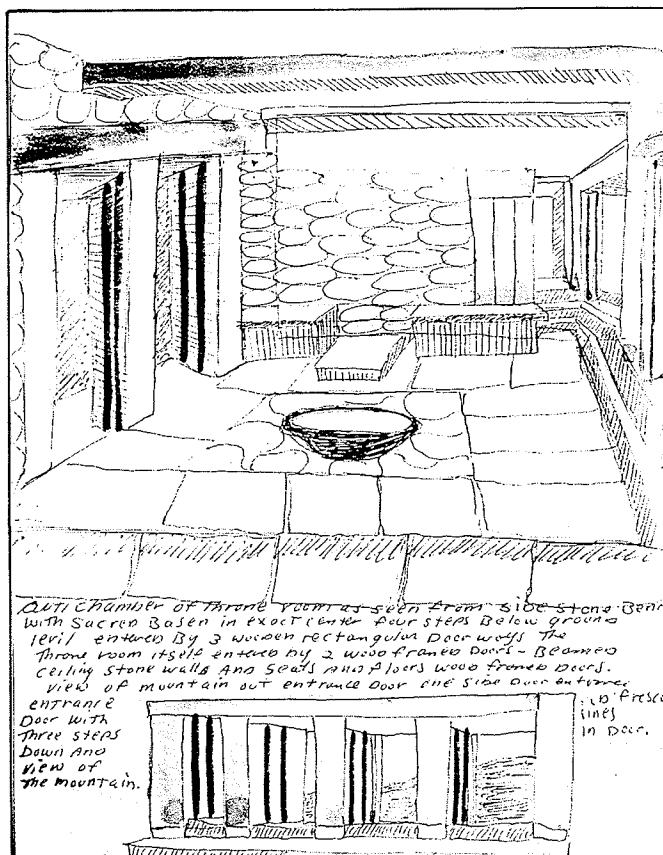 Outi Chamber of Throne room as seen from side stone Ben
with Sacred Basen in exact center four steps Below ground
levil entered By 3 wooden rectangular Door ways The
Throne room itself entered by 2 wood framed Doors - Beamed
ceiling stone walls And Seats And floors wood framed Doors.
View of mountain out entrance Door one Side Door entrance
entrance
Door with
Three steps
Down And
View of
The mountain.
fresco
in Door.